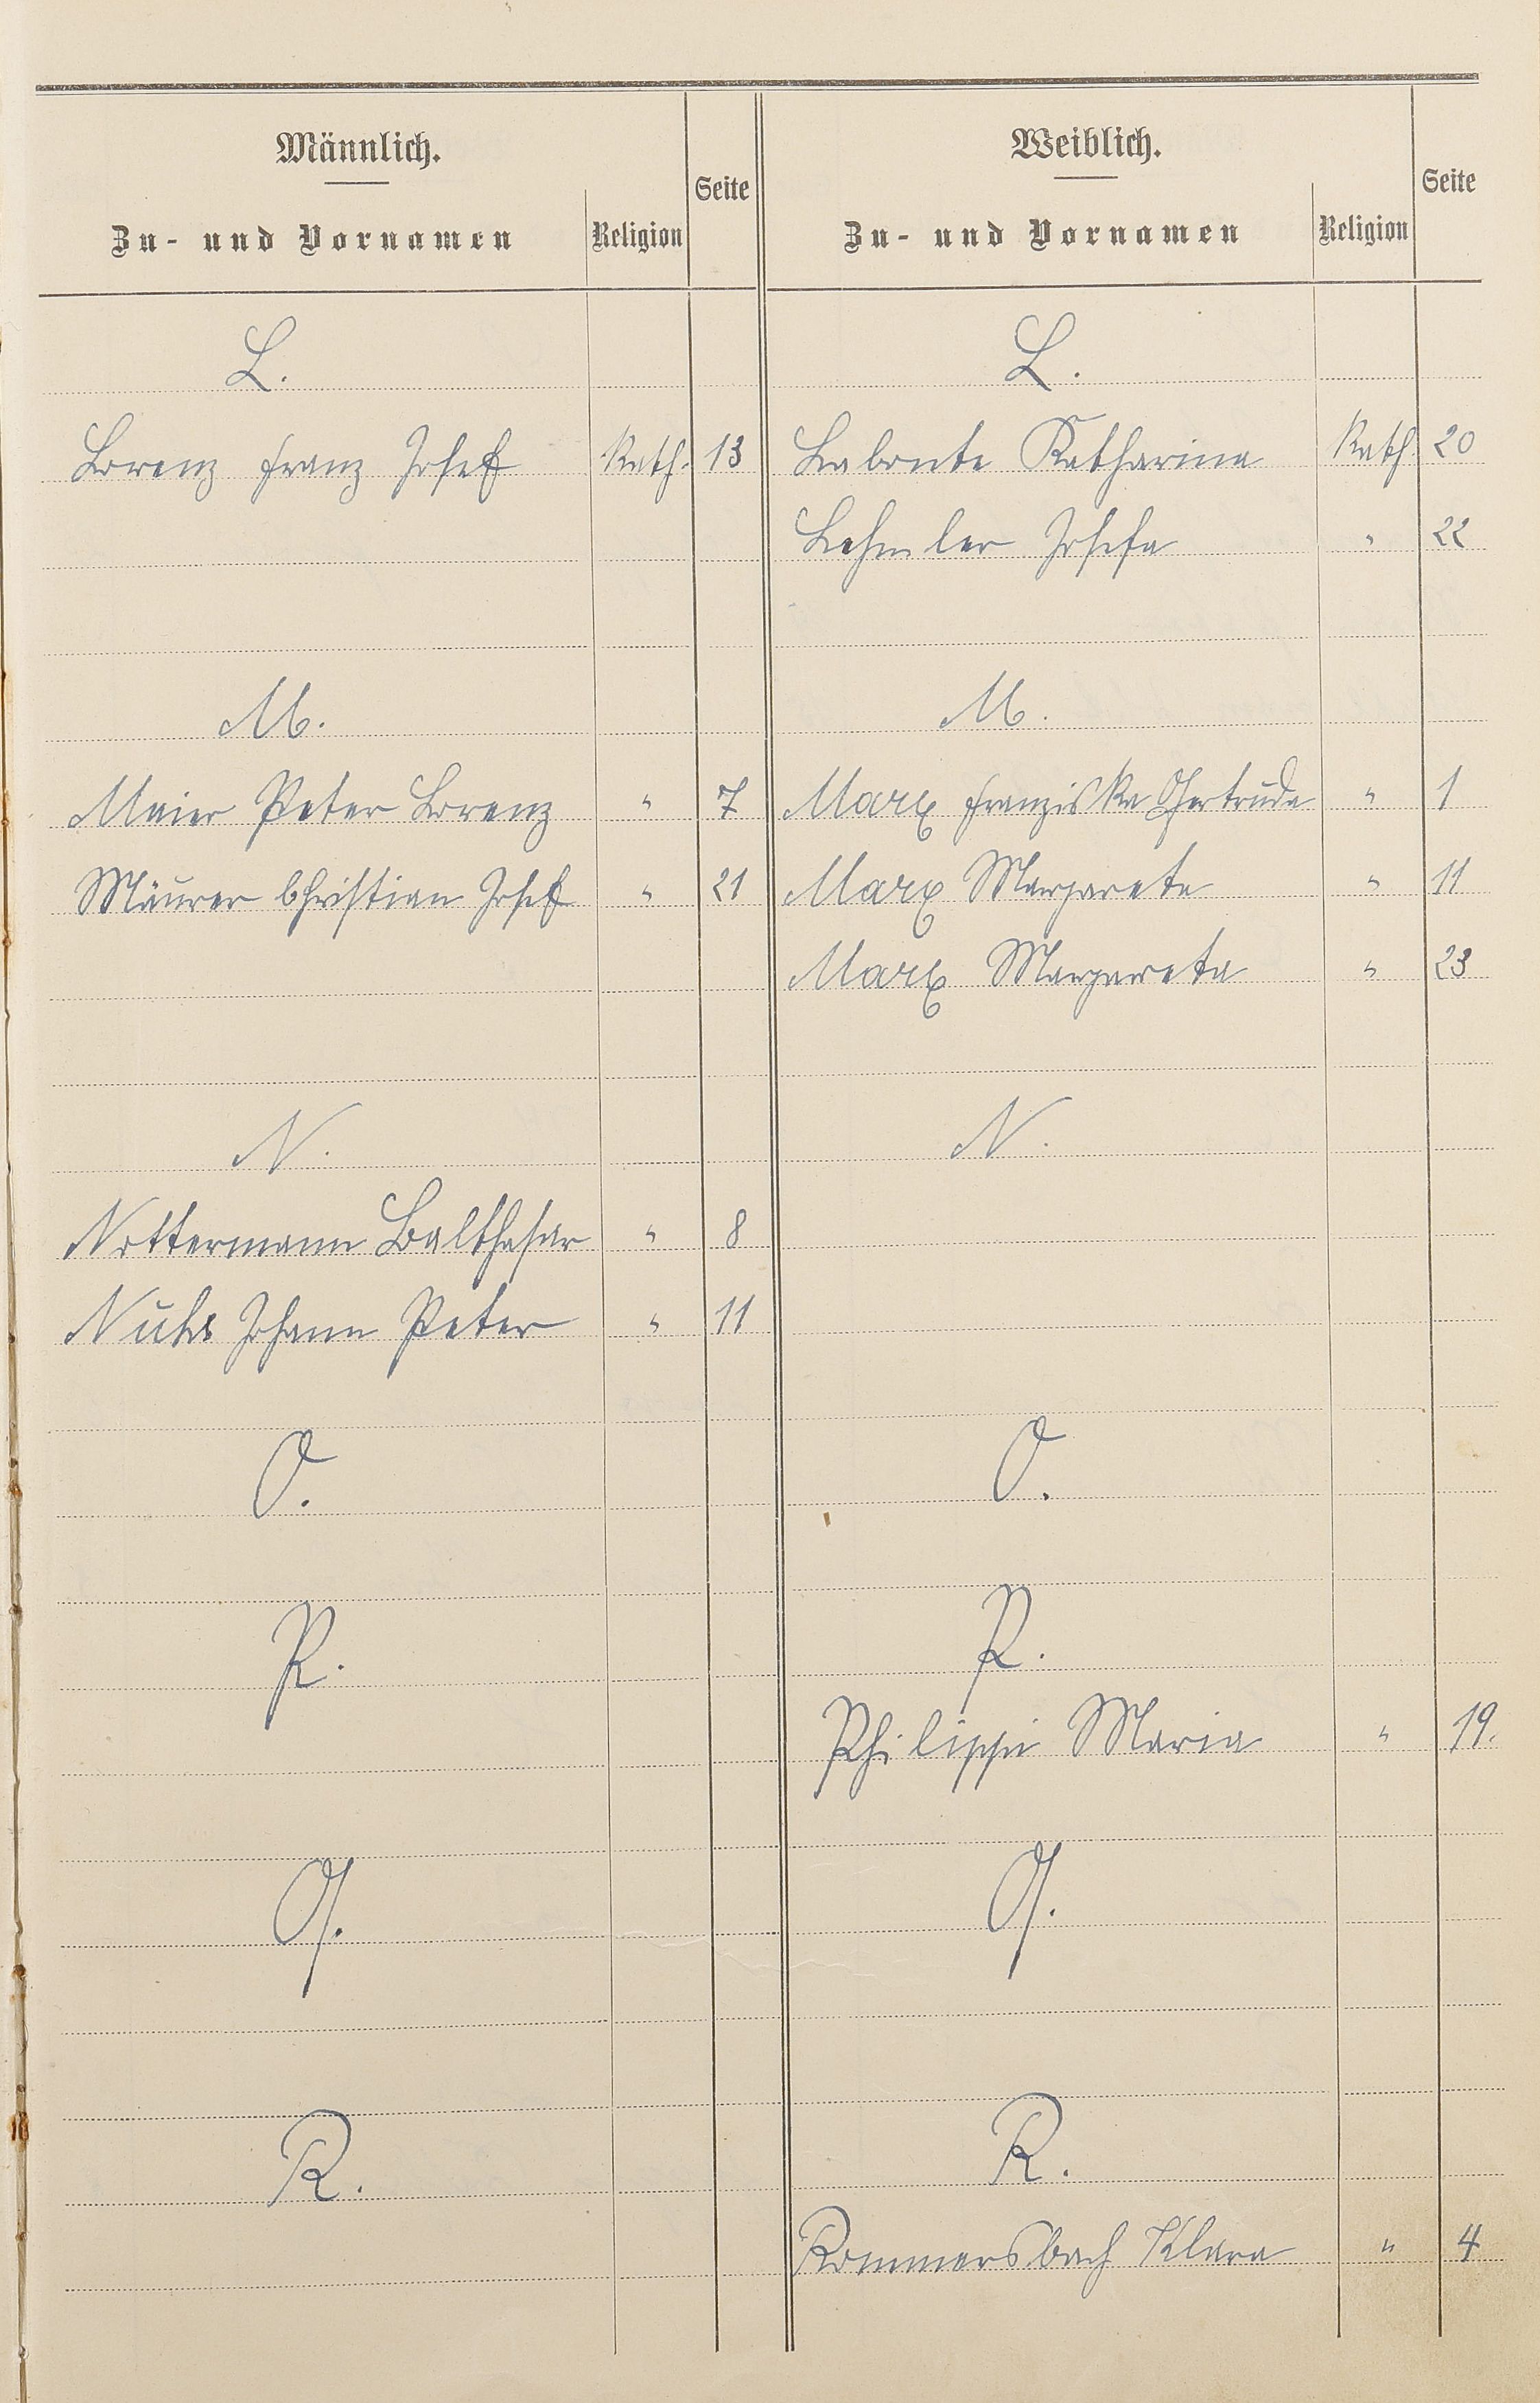 Männlich.
Zu- und Vornamen Religion Seite
L.
Lorenz Franz Josef Kath. 13
M.
Maier Peter Lorenz " 7
Mäurer Christian Josef " 21
N.
Nottermann Balthasar " 8
Johann Peter " 11
O.
P.
Q.
R.
Weiblich.
Zu- und Vornamen Religion Seite
L.
Labonte Katharina Kath. 20
Lehmler Josefa " 22
M.
Marx Franziska Gertruda " 1
Marx Margareta " 11
Marx Margareta " 23
N.
O.
P.
Philippi Maria " 19.
Q.
R.
Rommersbach Klara " 4